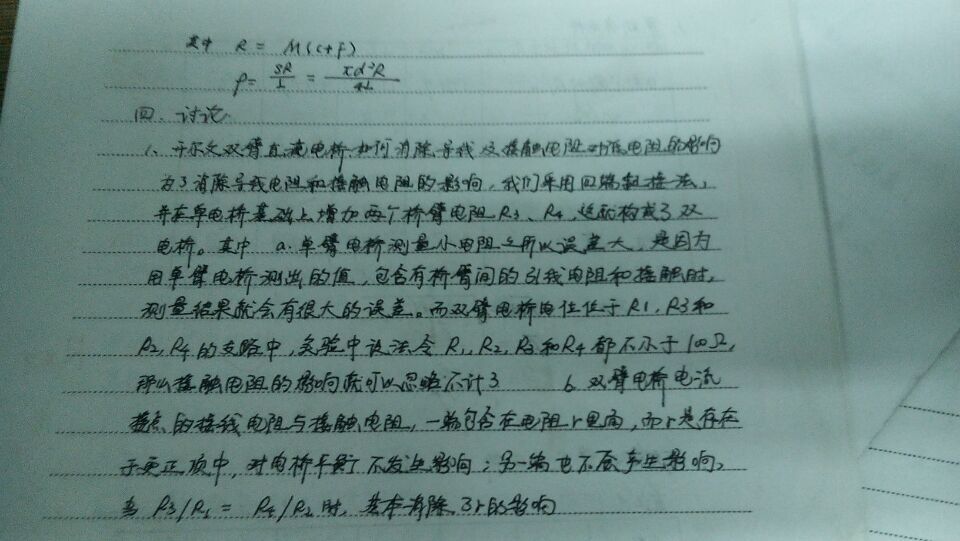 其中 R = M(C+P)
ρ= SR/L = πd²R/4L
四、讨论.
1、开尔文双臂直流电桥,如何消除导线及接触电阻对低电阻的影响
为了消除导线电阻和接触电阻的影响，我们采用四端接法，
并在单电桥基础上增加两个桥臂电阻R3、R4,这就构成了双
电桥。其中 a.单臂电桥测量小电阻之所以误差大，是因为
用单臂电桥测出的值，包含有桥臂间的引线电阻和接触时，
测量结果就会有很大的误差。而双臂电桥电位位于R1,R3和
R2,R4的支路中,实验中设法令R1,R2,R3和R4都不小于100Ω,
那么接触电阻的影响就可以忽略不计了 b.双臂电桥电流
接点的接线电阻与接触电阻，一端包含在电阻r里面,而r是存在
于更正项中，对电桥平衡了不发生影响；另一端也不会产生影响,
当 R3/R1 = R4/R2时，基本消除了r的影响